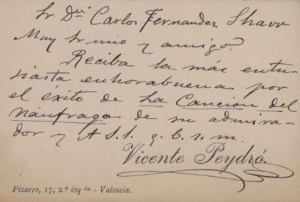 Sr Dn Carlos Fernandez Shaw
Muy Sr mio y amigo:
Reciba la más entu-
siasta enhorabuena por
el éxito de La Cancion del
náufrago de su admira-
dor y A. S. S. q. b. s. m.
Vicente Peydró
Pizarro, 17, 2.º izq da - Valencia.